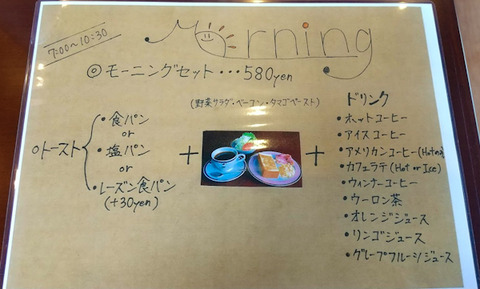 7:00～10:30
Morning
◎モーニングセット・・・580yen
(野菜サラダ・ベーコン・タマゴペースト)
○トースト
・食パン
or
・塩パン
or
・レーズン食パン
(+30yen)
+
+
ドリンク
・ホットコーヒー
・アイスコーヒー
・アメリカンコーヒー(Hotのみ)
・カフェラテ(Hot or Ice)
・ウィンナーコーヒー
・ウーロン茶
・オレンジジュース
・リンゴジュース
・グレープフルーツジュース